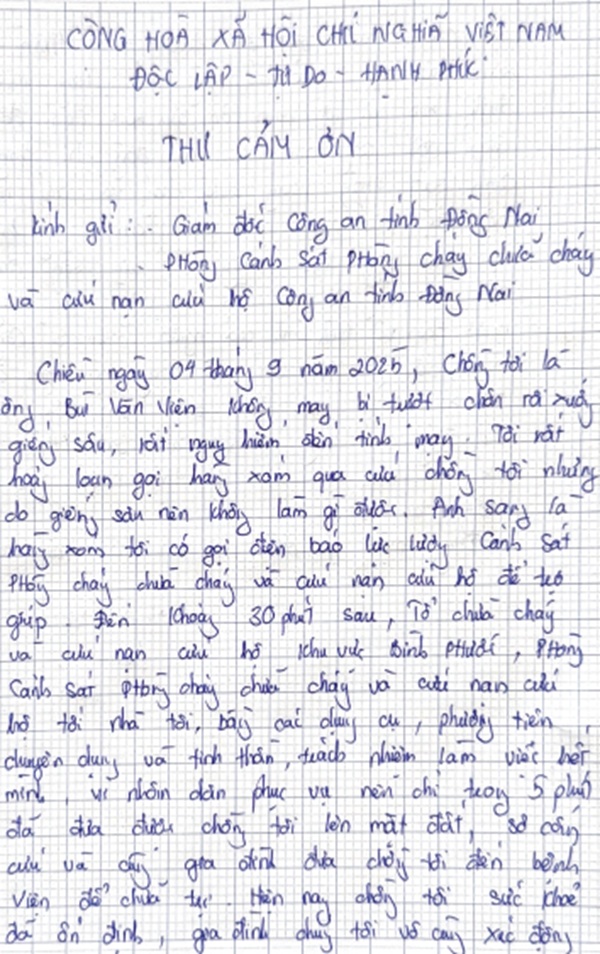 CỘNG HOÀ XÃ HỘI CHỦ NGHĨA VIỆT NAM
ĐỘC LẬP - TỰ DO - HẠNH PHÚC
THƯ CẢM ƠN
Kính gửi: - Giám đốc Công an tỉnh Đồng Nai
- Phòng Cảnh sát Phòng cháy chữa cháy
và cứu nạn cứu hộ Công an tỉnh Đồng Nai
Chiều ngày 04 tháng 9 năm 2025, Chồng tôi là
ông Bùi Văn Viên không may bị trượt chân rơi xuống
giếng sâu, rất nguy hiểm đến tính mạng. Tôi rất
hoảng loạn gọi hàng xóm qua cứu chồng tôi nhưng
do giếng sâu nên không làm gì được. Anh sang là
hàng xóm tôi có gọi điện báo lực lượng Cảnh sát
Phòng cháy chữa cháy và cứu nạn cứu hộ để trợ
giúp. Đến khoảng 30 phút sau, Tổ chữa cháy
và cứu nạn cứu hộ khu vực Bình Phước, Phòng
Cảnh sát Phòng cháy chữa cháy và cứu nạn cứu
hộ tới nhà tôi, bằng các dụng cụ, phương tiện
chuyên dụng và tinh thần, trách nhiệm làm việc hết
mình, vì nhân dân phục vụ nên chỉ trong 5 phút
đã đưa được chồng tôi lên mặt đất, sơ cứu
cứu và cùng gia đình đưa chồng tôi đến bệnh
viện để chữa trị. Hiện nay chồng tôi sức khoẻ
đã ổn định, gia đình chúng tôi vô cùng xúc động